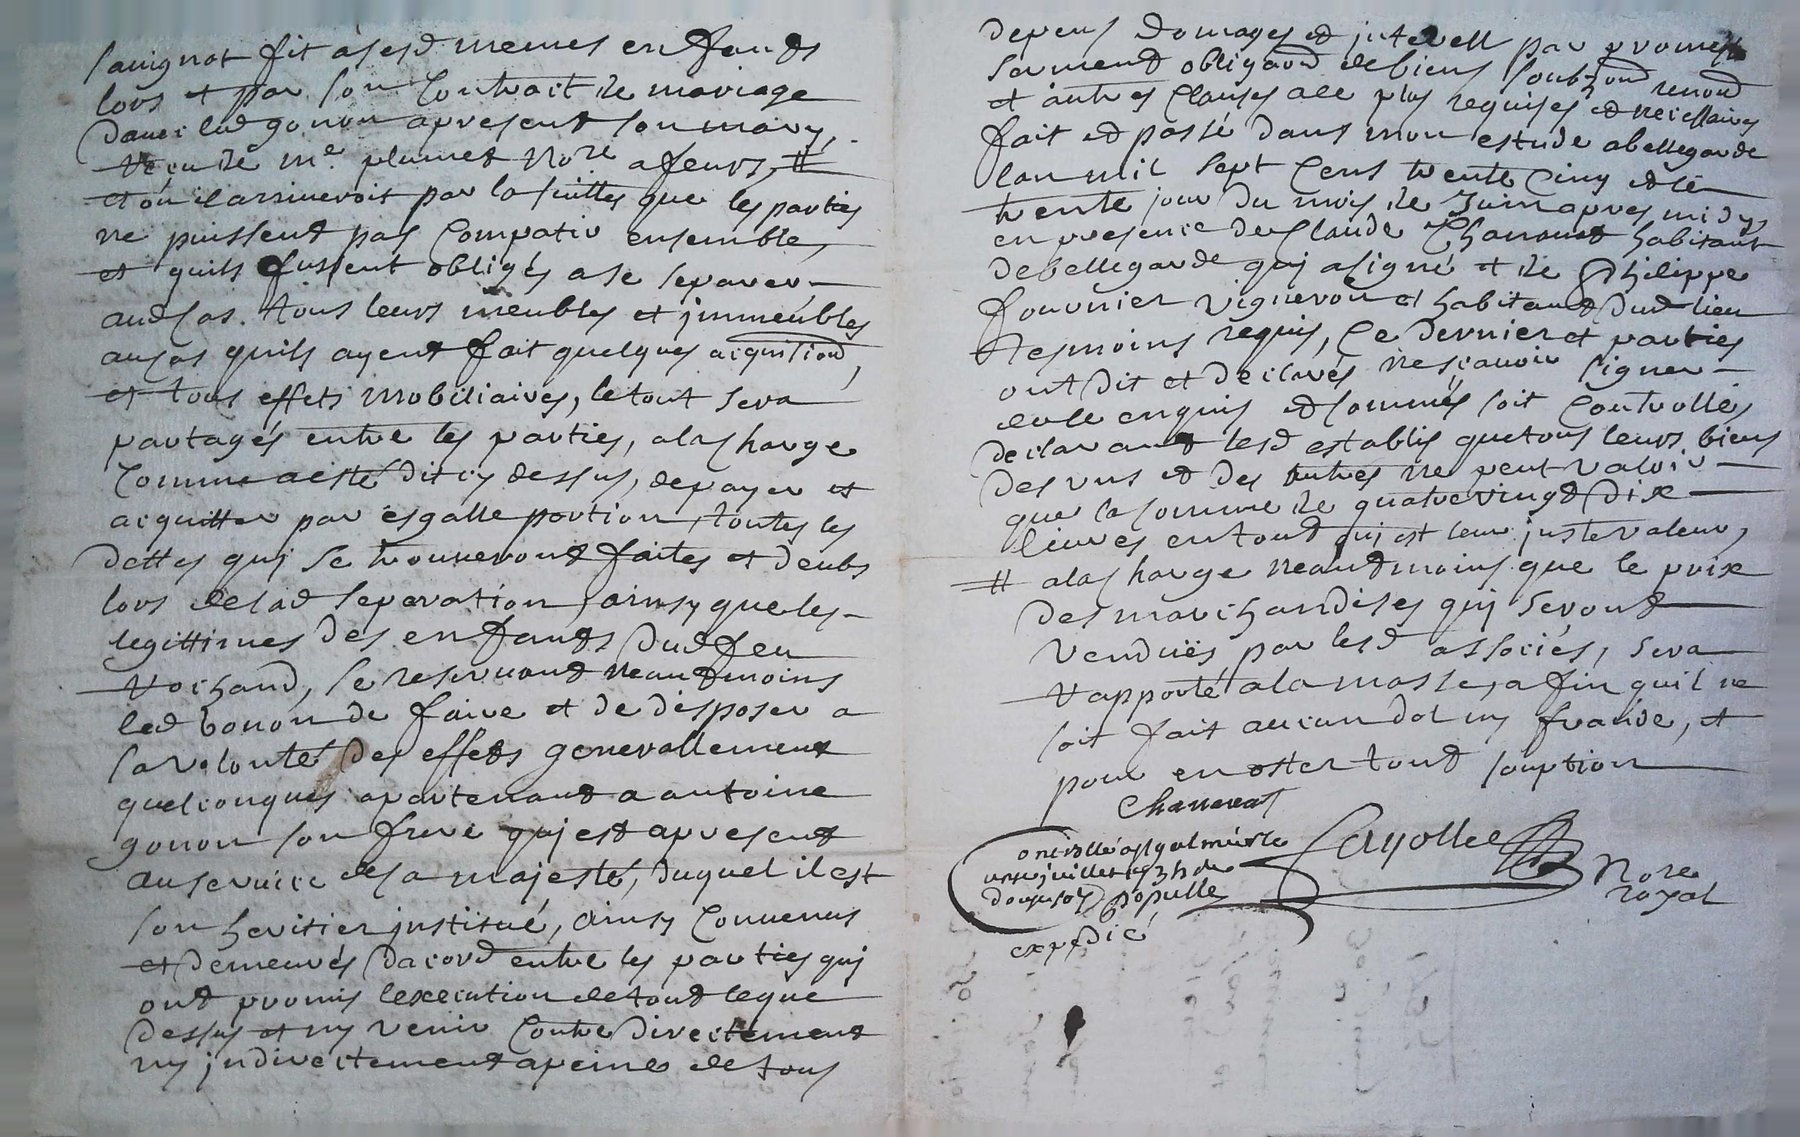 Sauignat fit a sesd memes enfands
lors et par son Contrait de mariage
dauec led gonon apresent son mary,
recu de me plumet Nore a feurs, #
et ou il arriueroit par la suittes que les parties
ne puissent pas Compatir ensemble,
et quils fussent obligés a se separer
aud cas. tous leurs meubles et jmmeubles
au cas quils ayent fait quelques acquisiond,
et tous effets mobiliaires, le tout sera
partagés entre les parties, alascharge
Comme a esté dit cy dessus, depayer et
acquitter par esgalle portion, toutes les
dettes quj se trouueront faites et deubs
lors delad separation, ainsy que les
legittimes des enfands dud feu
rochand, se reseruand neandmoins
led bonon de faire et de disposer a
sa volonté des effets generallement
quelconques apartenand a antoine
gonon son frere quj est apresent
au seruice de sa majesté, duquel il est
son heritier justitué, ainsy Conuenus
et demeurés dacord entre les parties quj
ond promis lexecution detoud leque
dessus et ny venir Contre directement
ny jndirectement apeine de tous
depens domages et jnterest par promesse
serment obligaond debiens soubzond renond
et autres Clauses ace plus requises et necessaires
fait et passé dans mon estude abellegarde
lan mil sept Cens trente Cinq et le
trente jour du mois de Juin apres midy,
en presence de Claude Chanauat habitant
debellegarde quj a signé et de Philippe
fournier vigneron et habitand dud lieu
tesmoins requis, Ce dernier et parties
ont dit et declarés nescauoir signer
de ce enquis et sommés soit Controllés
declarant lesd establis quetous leurs biens
des uns et des autres ne peut valoir
que la somme de quatrevingt dix
liures entout quj est leur juste valeur,
# alascharge neandmoins que le prix
des marchandises quj seront
venduës par lesd associés, sera
rapporté a la masse, afin quil ne
soit fait aucun dol ny fraude, et
pour en oster toud soubtion
Chanauat
Controllé a st galmier le
unze juillet 1735 R
douze sols Populle
Fayolle
Nore
royal
expedié